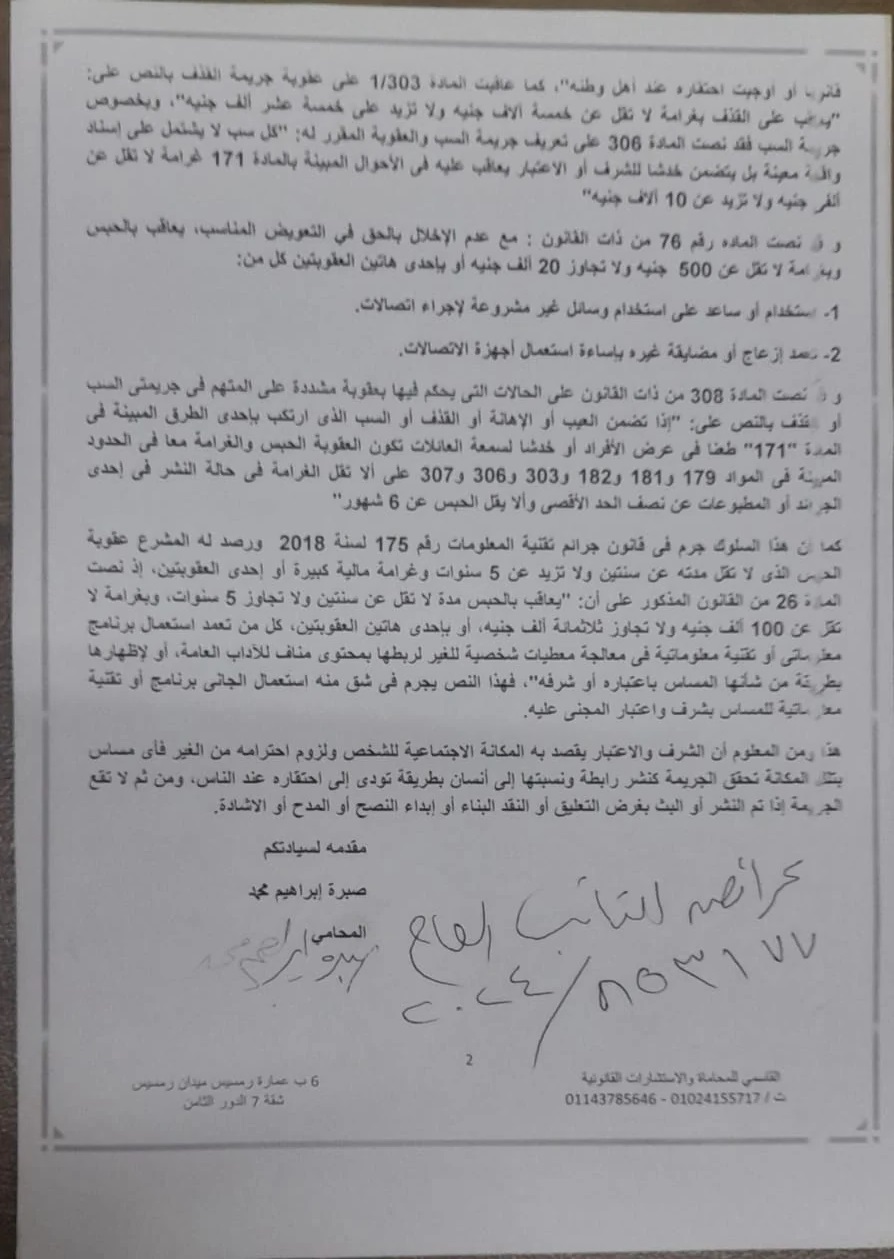 قانونا أو أوجبت احتقاره عند أهل وطنه"، كما عاقبت المادة 1/303 على عقوبة جريمة القذف بالنص على:
"يعاقب على القذف بغرامة لا تقل عن خمسة آلاف جنيه ولا تزيد على خمسة عشر ألف جنيه"، وبخصوص
جريمة السب فقد نصت المادة 306 على تعريف جريمة السب والعقوبة المقرر له: "كل سب لا يشتمل على إسناد
واقعة معينة بل يتضمن خدشا للشرف أو الاعتبار يعاقب عليه فى الأحوال المبينة بالمادة 171 غرامة لا تقل عن
ألفى جنيه ولا تزيد عن 10 آلاف جنيه"
و نصت الماده رقم 76 من ذات القانون : مع عدم الإخلال بالحق في التعويض المناسب، يعاقب بالحبس
وبغرامة لا تقل عن 500 جنيه ولا تجاوز 20 ألف جنيه أو بإحدى هاتين العقوبتين كل من:
1- استخدام أو ساعد على استخدام وسائل غير مشروعة لإجراء اتصالات.
2- تعمد إزعاج أو مضايقة غيره بإساءة استعمال أجهزة الاتصالات.
و نصت المادة 308 من ذات القانون على الحالات التى يحكم فيها بعقوبة مشددة على المتهم فى جريمتى السب
أو القذف بالنص على: "إذا تضمن العيب أو الإهانة أو القذف أو السب الذى ارتكب بإحدى الطرق المبينة فى
المادة "171" طعنا فى عرض الأفراد أو خدشا لسمعة العائلات تكون العقوبة الحبس والغرامة معا فى الحدود
المبينة فى المواد 179 و181 و182 و303 و306 و307 على ألا تقل الغرامة فى حالة النشر فى إحدى
الجرائد أو المطبوعات عن نصف الحد الأقصى وألا يقل الحبس عن 6 شهور"
كما أن هذا السلوك جرم فى قانون جرائم تقنية المعلومات رقم 175 لسنة 2018 ورصد له المشرع عقوبة
الحبس الذى لا تقل مدته عن سنتين ولا تزيد عن 5 سنوات وغرامة مالية كبيرة أو إحدى العقوبتين، إذ نصت
المادة 26 من القانون المذكور على أن: "يعاقب بالحبس مدة لا تقل عن سنتين ولا تجاوز 5 سنوات، وبغرامة لا
تقل عن 100 ألف جنيه ولا تجاوز ثلاثمائة ألف جنيه، أو بإحدى هاتين العقوبتين، كل من تعمد استعمال برنامج
معلوماتى أو تقنية معلوماتية فى معالجة معطيات شخصية للغير لربطها بمحتوى مناف للآداب العامة، أو لإظهارها
بطريقة من شأنها المساس باعتباره أو شرفه"، فهذا النص يجرم فى شق منه استعمال الجانى برنامج أو تقنية
معلوماتية للمساس بشرف واعتبار المجنى عليه.
هذا ومن المعلوم أن الشرف والاعتبار يقصد به المكانة الاجتماعية للشخص ولزوم احترامه من الغير فأى مساس
بتلك المكانة تحقق الجريمة كنشر رابطة ونسبتها إلى أنسان بطريقة تودى إلى احتقاره عند الناس، ومن ثم لا تقع
الجريمة إذا تم النشر أو البث بغرض التعليق أو النقد البناء أو إبداء النصح أو المدح أو الاشادة.
مقدمه لسيادتكم
صبرة إبراهيم محمد
المحامي
عرائض النائب العام
٨٥٣٦٧٧ / ٢٠٢٤
2
القاسمي للمحاماة والاستشارات القانونية
ت / 01024155717 - 01143785646
6 ب عمارة رمسيس ميدان رمسيس
شقة 7 الدور الثامن